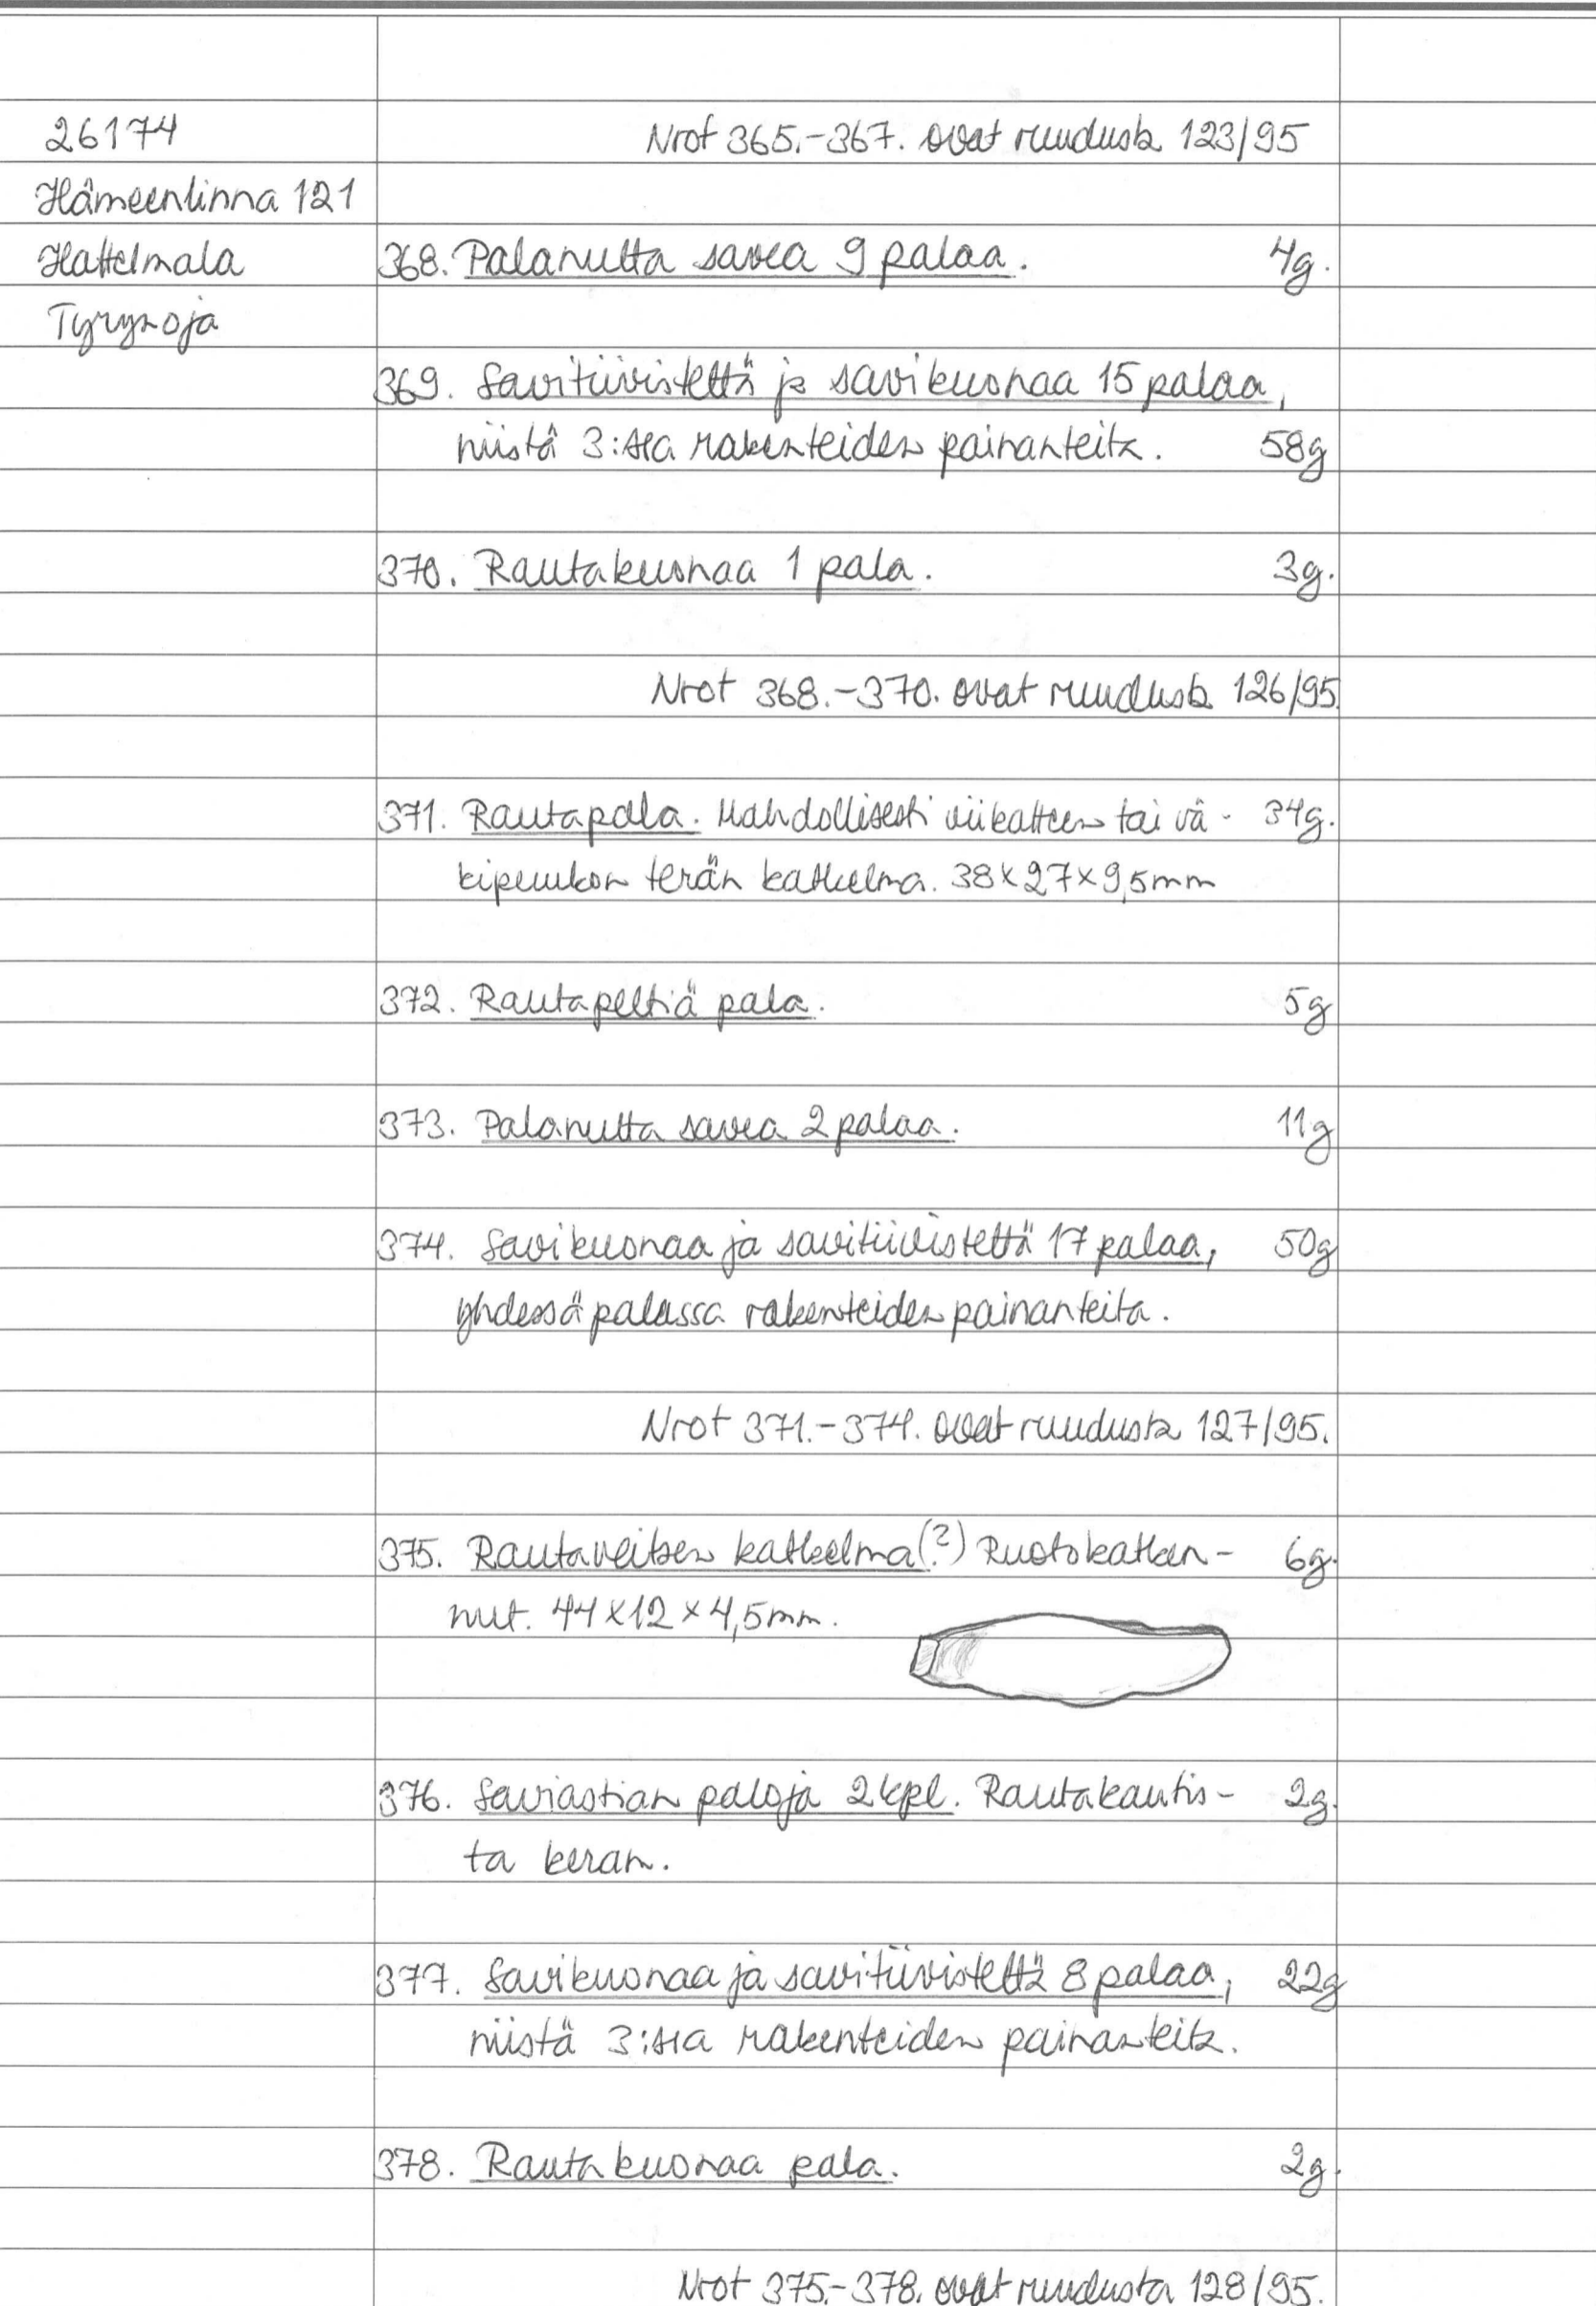 26174
Hämeenlinna 121
Hattelmala
Tyrynoja
Nrot 365.-367. ovat ruudusta 123/95
368. Palanutta savea 9 palaa. 4g.
369. Savitiivistettä ja savikuonaa 15 palaa,
niistä 3:ssa rakenteiden painanteita. 58g
370. Rautakuonaa 1 pala. 3g.
Nrot 368.-370. ovat ruudusta 126/95.
371. Rautapala. Mahdollisesti viikatteen tai vä- 34g.
kipuukon terän katkelma. 38x27x9,5mm
372. Rautapeltiä pala. 5g
373. Palanutta savea 2 palaa. 11g
374. Savikuonaa ja savitiivistettä 17 palaa, 50g
yhdessä palassa rakenteiden painanteita.
Nrot 371.-374. ovat ruudusta 127/95.
375. Rautaveitsen katkelma(?) Ruoto katken- 6g.
nut. 44x12x4,5mm.
376. Saviastian paloja 2kpl. Rautakautis- 2g.
ta keram.
377. Savikuonaa ja savitiivistettä 8 palaa, 22g
niistä 3:ssa rakenteiden painanteita.
378. Rautakuonaa pala. 2g.
Nrot 375.-378. ovat ruudusta 128/95.